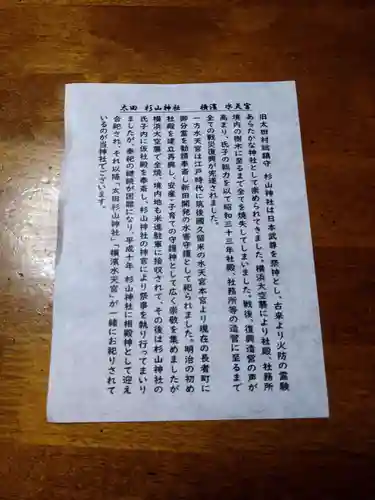 太田 杉山神社　　横濱 水天宮
旧太田村総鎮守　杉山神社は日本武尊を祭神とし、古来より火防の霊験
あらたかな神社として崇められてきました。横浜大空襲により社殿、社務所
境内の樹木に至るまで全てを焼失してしまいました。戦後、復興造営の声が
高まり、氏子の総力を以て昭和三十三年社殿、社務所等の造営に至るまで
全ての戦災復興が完遂されました。
一方水天宮は江戸時代に筑後國久留米の水天宮本宮より現在の長者町に
御分霊を勧請奉斎し新田開発の水害守護として祀られました。明治の初め
社殿を建立再興し、安産・子育ての守護神として広く崇敬を集めましたが
横浜大空襲で全焼、境内地も米進駐軍に接収されて、その後は杉山神社の
氏子内に仮社殿を奉斎し、杉山神社の神官により祭事を執り行ってまいり
ましたが、奉祀の継続が困難になり、平成十年　杉山神社に相殿神として迎え
合祀され、それ以降「太田杉山神社」「横濱水天宮」が一緒にお祀りされて
いるのが当神社でございます。